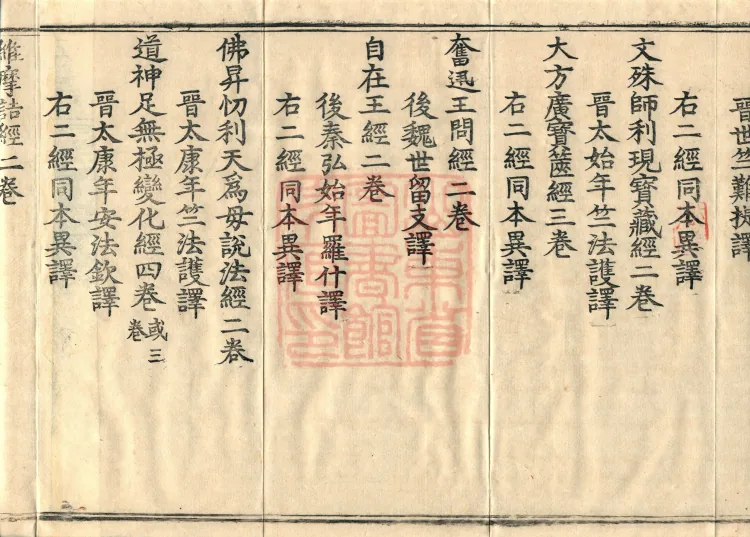 晉世竺難提譯
右二經同本異譯
文殊師利現寶藏經二卷
晉太始年竺法護譯
大方廣寳篋經三卷
右二經同本異譯
奮迅王問經二卷
後魏世留支譯
自在王經二卷
後秦弘始年羅什譯
右二經同本異譯
佛昇忉利天爲母說法經二卷
晉太康年竺法護譯
道神足無極變化經四卷或三卷
晉太康年安法欽譯
右二經同本異譯
維摩詰經二卷